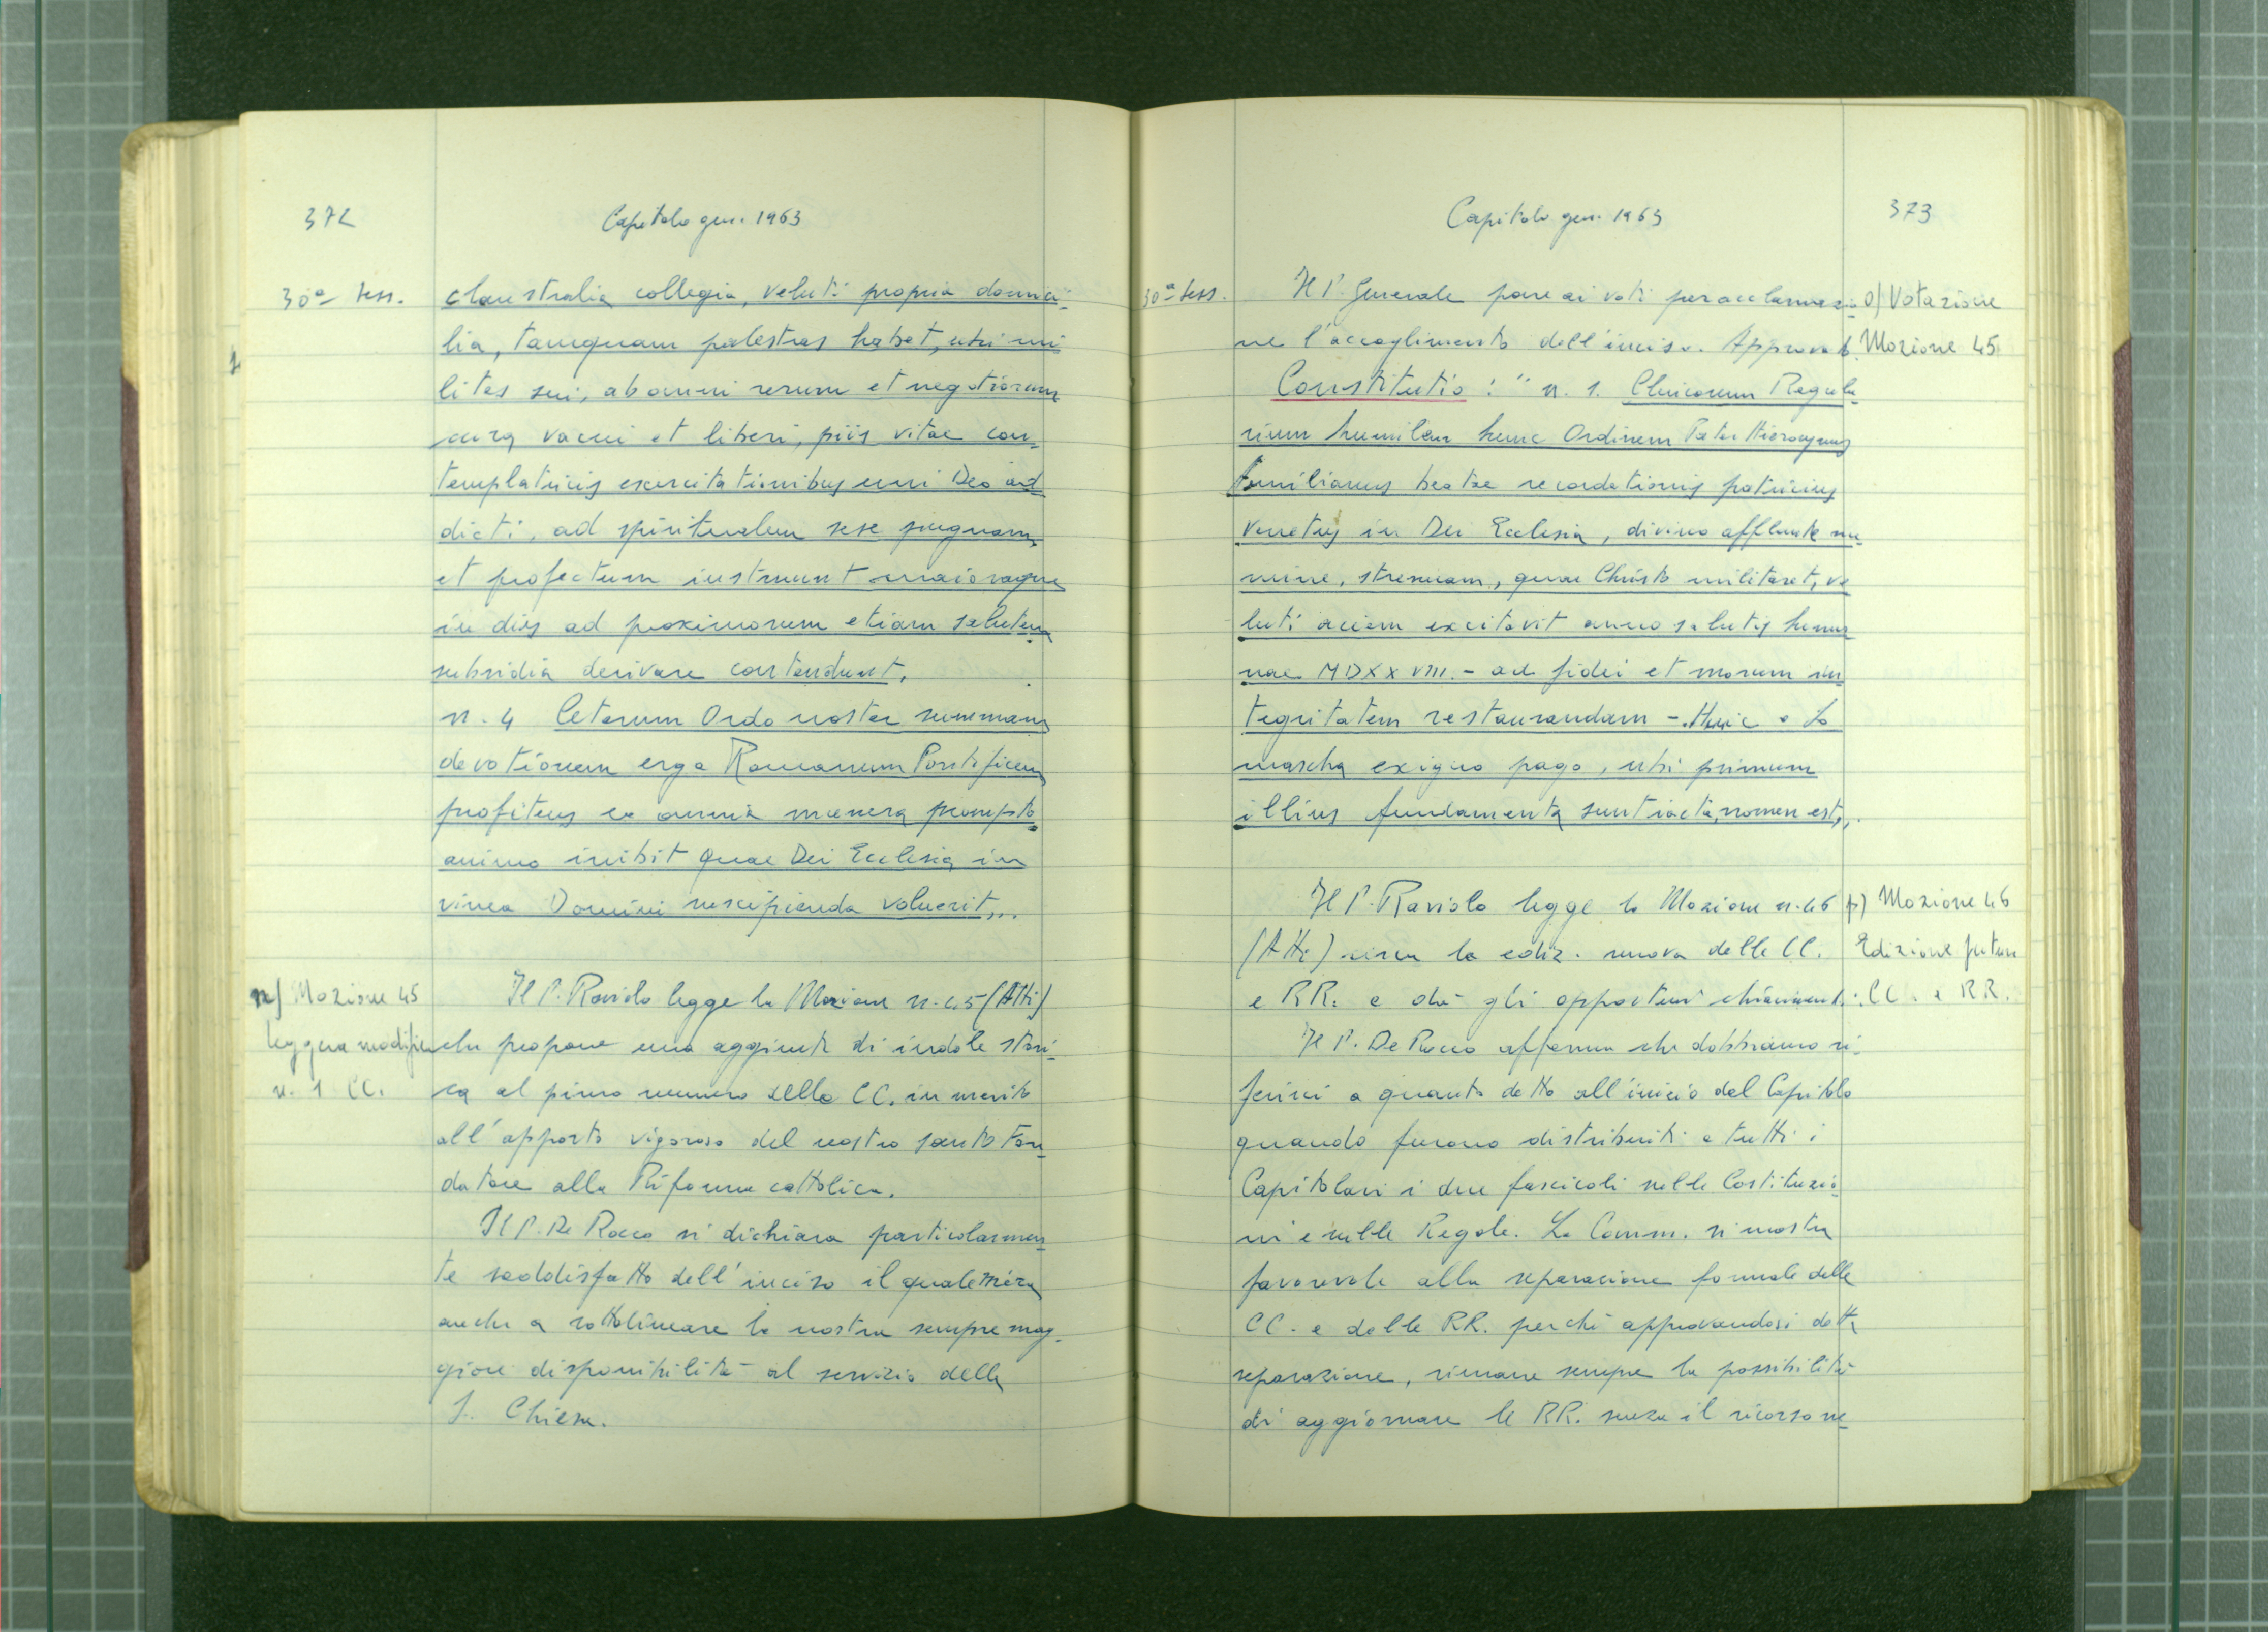 372
Capitolo gen. 1963
30ª sess.
claustralia collegia, veluti propria domici-
lia, tamquam palestras habet, ubi mi
lites sui, ab omni rerum et negotiorum
cura vacui et liberi, piis vitae con-
templatricis exercitationibus uni Deo ad
dicti, ad spiritualem sese pugnam
et profectum instruunt maioraque
in dies ad proximorum etiam salutem
subsidia derivare contendunt.
n. 4 Ceterum Ordo noster summam
devotionem erga Romanum Pontificem
profitens ea omnia munera prompto
animo inibit quae Dei Ecclesia in
vinea Domini suscipienda voluerit„.
n) Mozione 45
leggera modifica
n. 1 CC.
Il P. Raviolo legge la Mozione n. 45 (Atti)
che propone una aggiunta di indole stori-
ca al primo numero delle CC. in merito
all'apporto vigoroso del nostro santo Fon
datore alla Riforma cattolica.
Il P. De Rocco si dichiara particolarmen
te soddisfatto dell'inciso il quale mira
anche a sottolineare la nostra sempre mag-
giore disponibilità al servizio della
S. Chiesa.
Capitolo gen. 1963
373
30ª sess.
Il P. Generale pone ai voti per acclamazio-
ne l'accoglimento dell'inciso. Approvato.
o) Votazione
Mozione 45
Constitutio: " n. 1. Clericorum Regula
rium humilem hunc Ordinem Pater Hieronymus
Aemilianus beatae recordationis patricius
venetus in Dei Ecclesia, divino afflante nu
mine, strenuam, quae Christo militaret, ve
luti aciem excitavit anno salutis huma
nae MDXXVIII. - ad fidei et morum in
tegritatem restaurandam -. Huic a So
mascha exiguo pago, ubi primum
illius fundamenta sunt iacta, nomen est„.
Il P. Raviolo legge la Mozione n. 46
(Atti) circa la ediz. nuova delle CC.
e RR. e dà gli opportuni chiarimenti.
p) Mozione 46
Edizione futura
CC. e RR.
Il P. De Rocco afferma che dobbiamo ri-
ferirci a quanto detto all'inizio del Capitolo
quando furono distribuiti a tutti i
Capitolari i due fascicoli sulle Costituzio
ni e sulle Regole. La Comm. si mostra
favorevole alla separazione formale delle
CC. e delle RR. perché approvandosi detta
separazione, rimane sempre la possibilità
di aggiornare le RR. senza il ricorso ne